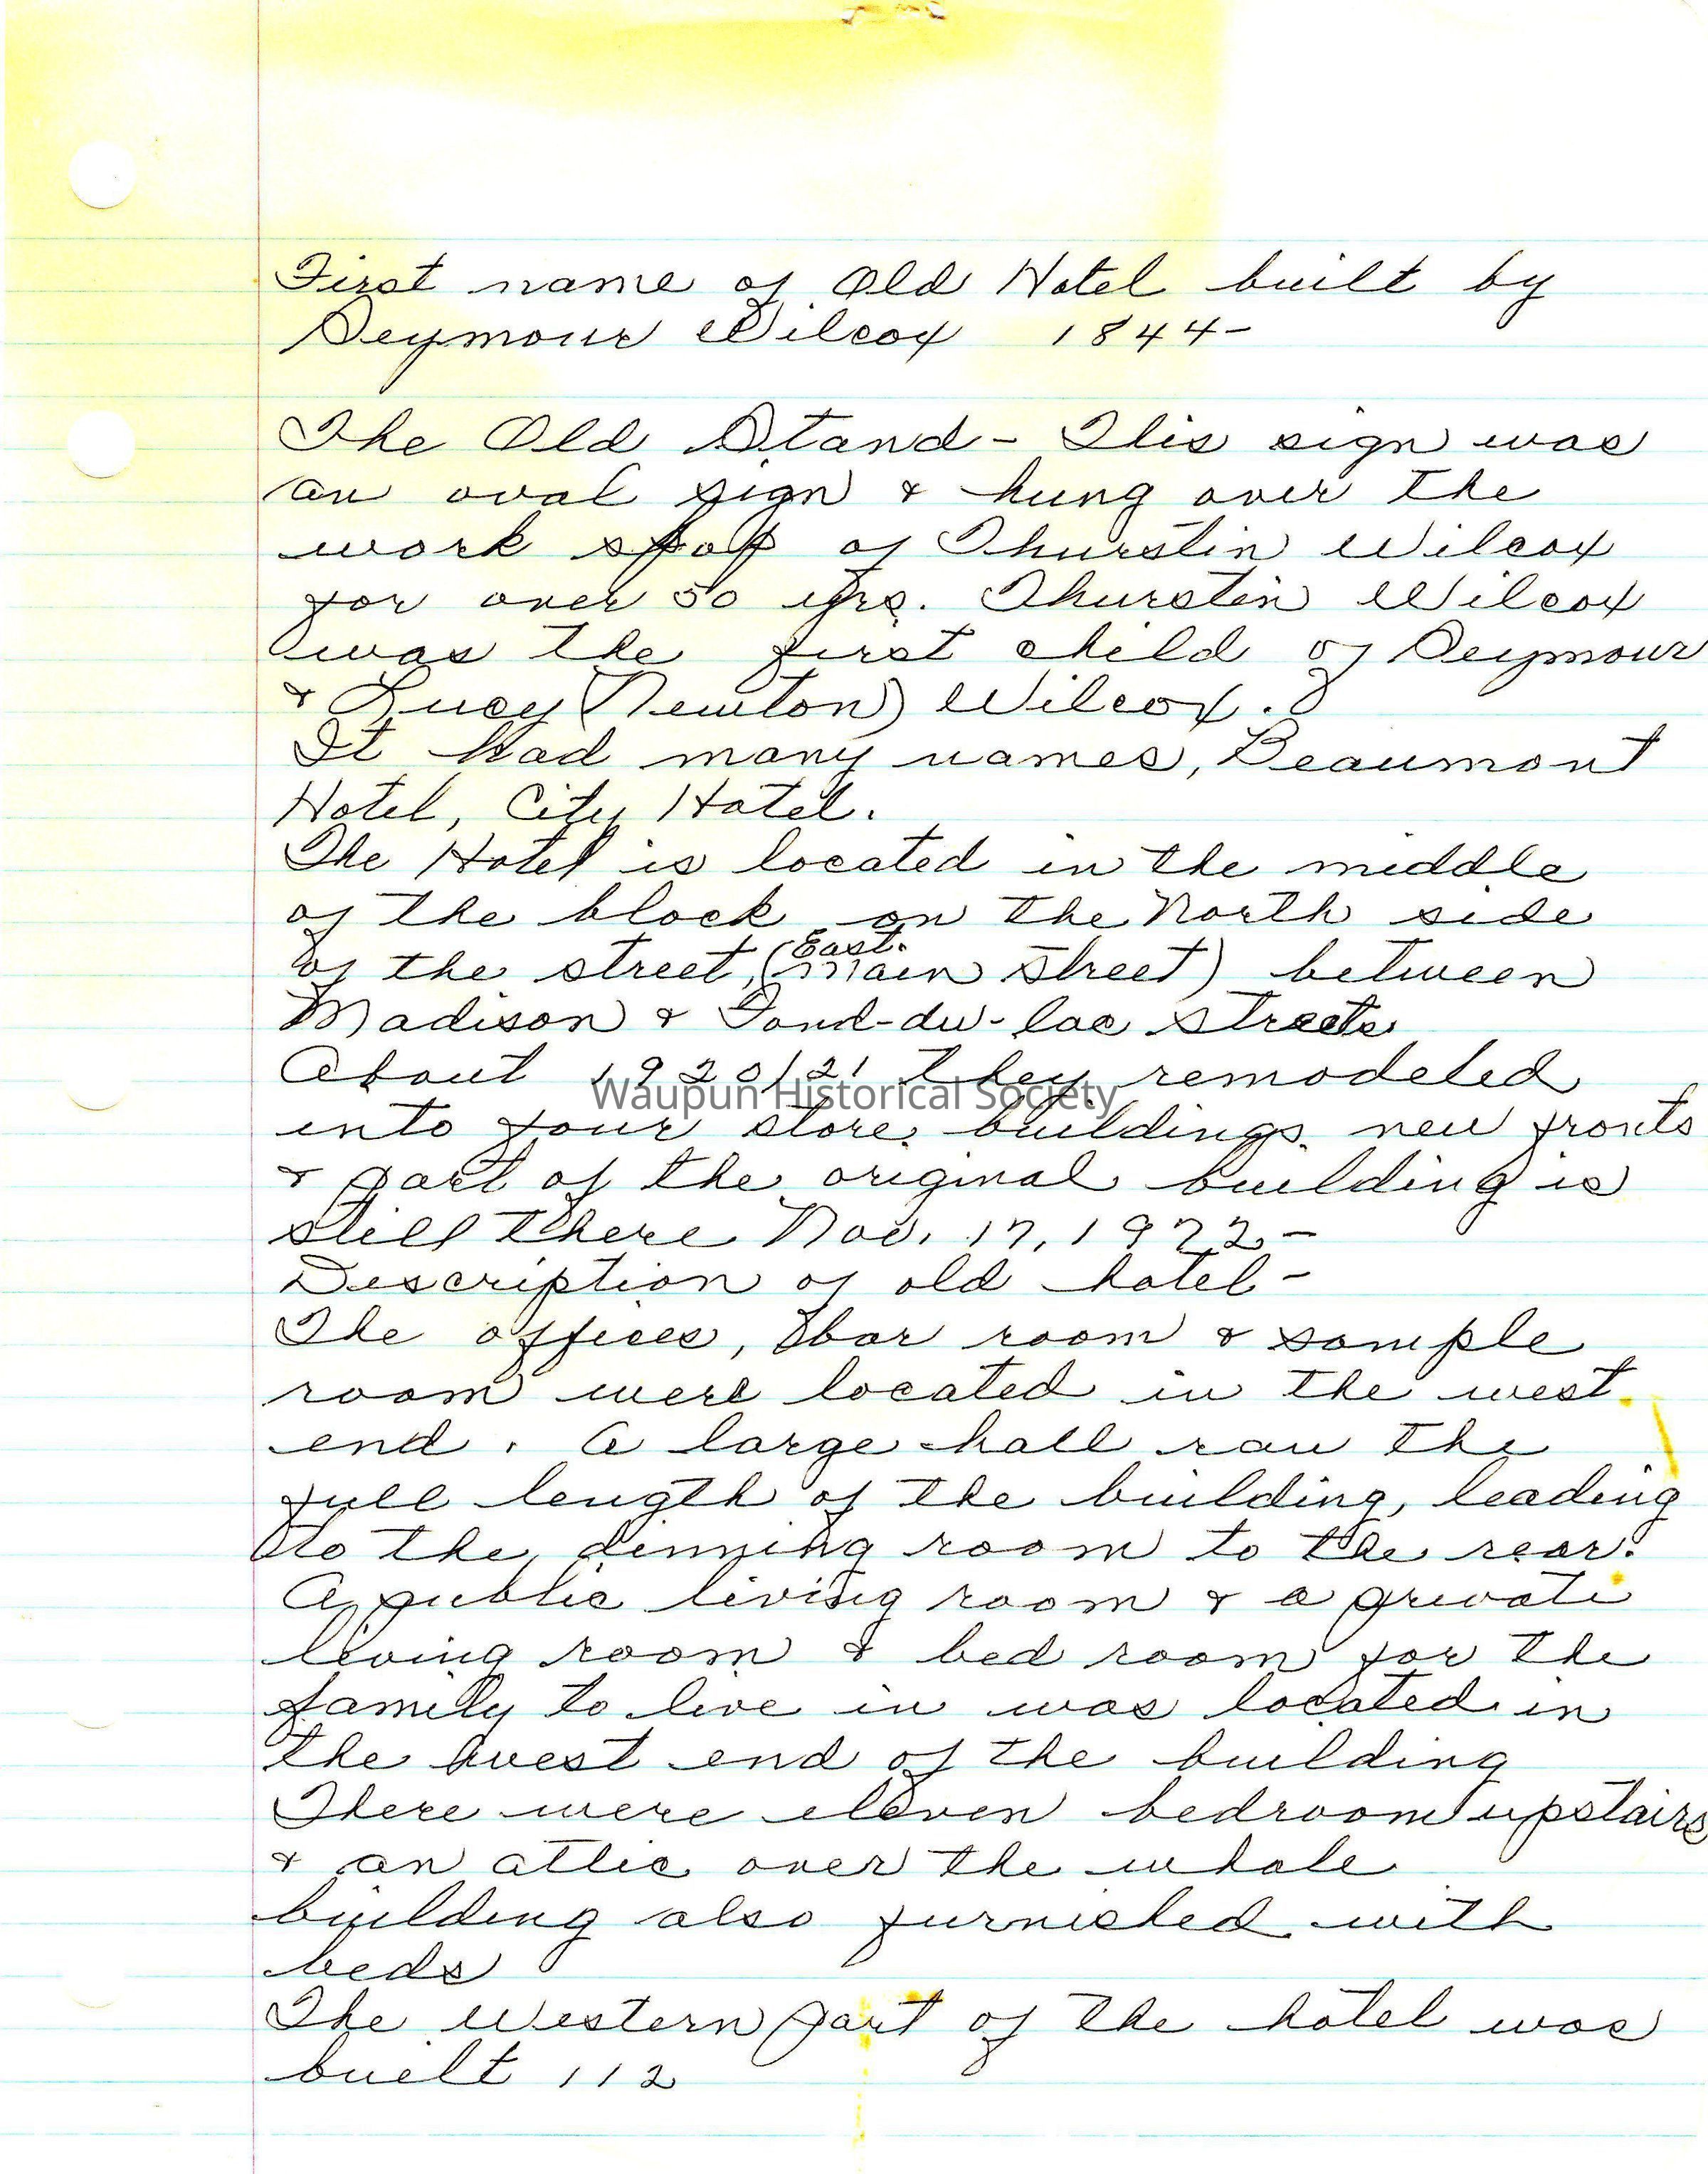 First name of Old Hotel built by
Seymour Wilcox 1844-
The Old Stand - This sign was
an oval sign & hung over the
work shop of Thurstin Wilcox
for over 50 yrs. Thurstin Wilcox
was the first child of Seymour
& Lucy (Newton) Wilcox.
It had many names, Beaumont
Hotel, City Hotel.
The Hotel is located in the middle
of the block on the North side
of the street, (East Main Street) between
Madison & Fond-du-lac Streets
About 1920/21 they remodeled
into four store buildings new fronts
& part of the original building is
still there Nov. 17, 1972-
Description of old hotel-
The offices, bar room & sample
room were located in the west
end. A large hall ran the
full length of the building, leading
to the dinning room to the rear.
A public living room & a private
living room & bed room for the
family to live in was located in
the west end of the building
There were eleven bedroom upstairs
& an attic over the whole
building also furnished with
beds
The Western part of the hotel was
built 112
Waupun Historical Society